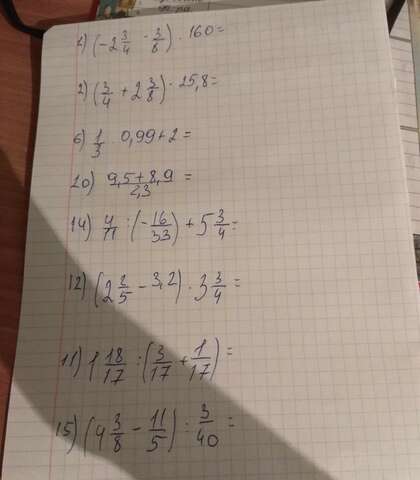 1) (-2 3/4 - 3/8) · 160 =
2) (3/4 + 2 3/8) · 25,8 =
6) 1/3 · 0,99 + 2 =
10) (9,5 + 8,9)/2,3 =
14) 4/11 : (-16/33) + 5 3/4 =
12) (2 2/5 - 3,2) · 3 3/4 =
11) 1 18/17 : (3/17 + 1/17) =
15) (4 3/8 - 11/5) : 3/40 =